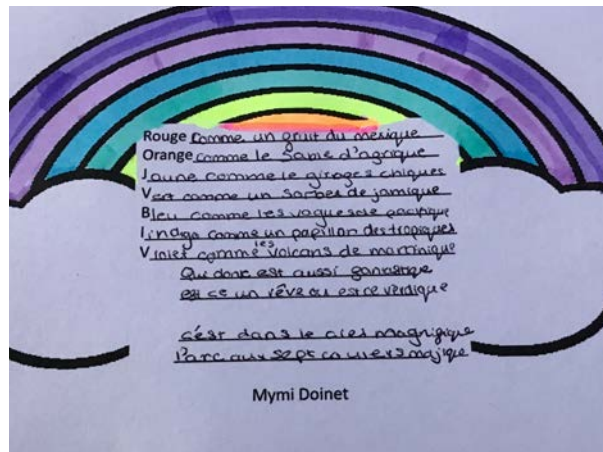 Rouge comme un gruit du mexique
Orange comme le sable d'agrique
Jaune comme le girages chiques
Vert comme un sorbet de jamique
Bleu comme les vagues de pacifique
Indigo comme un papillon des tropiques
Violet comme les volcans de martinique
Qui donc est aussi gantastique
est ce un rêve ou est ce verdique
c'est dans le ciel magnigique
L'arc aux sept couleurs majique
Mymi Doinet